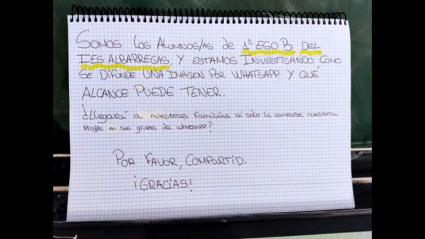 SOMOS LOS ALUMNOS/AS DE 1º ESO B DEL
IES ALBARREGAS, Y ESTAMOS INVESTIGANDO CÓMO
SE DIFUNDE UNA IMAGEN POR WHATSAPP Y QUÉ
ALCANCE PUEDE TENER.
¿Llegará a nuestras familias si sólo la comparte nuestra
profe en sus grupos de whatsapp?
POR FAVOR, COMPARTID.
¡GRACIAS!